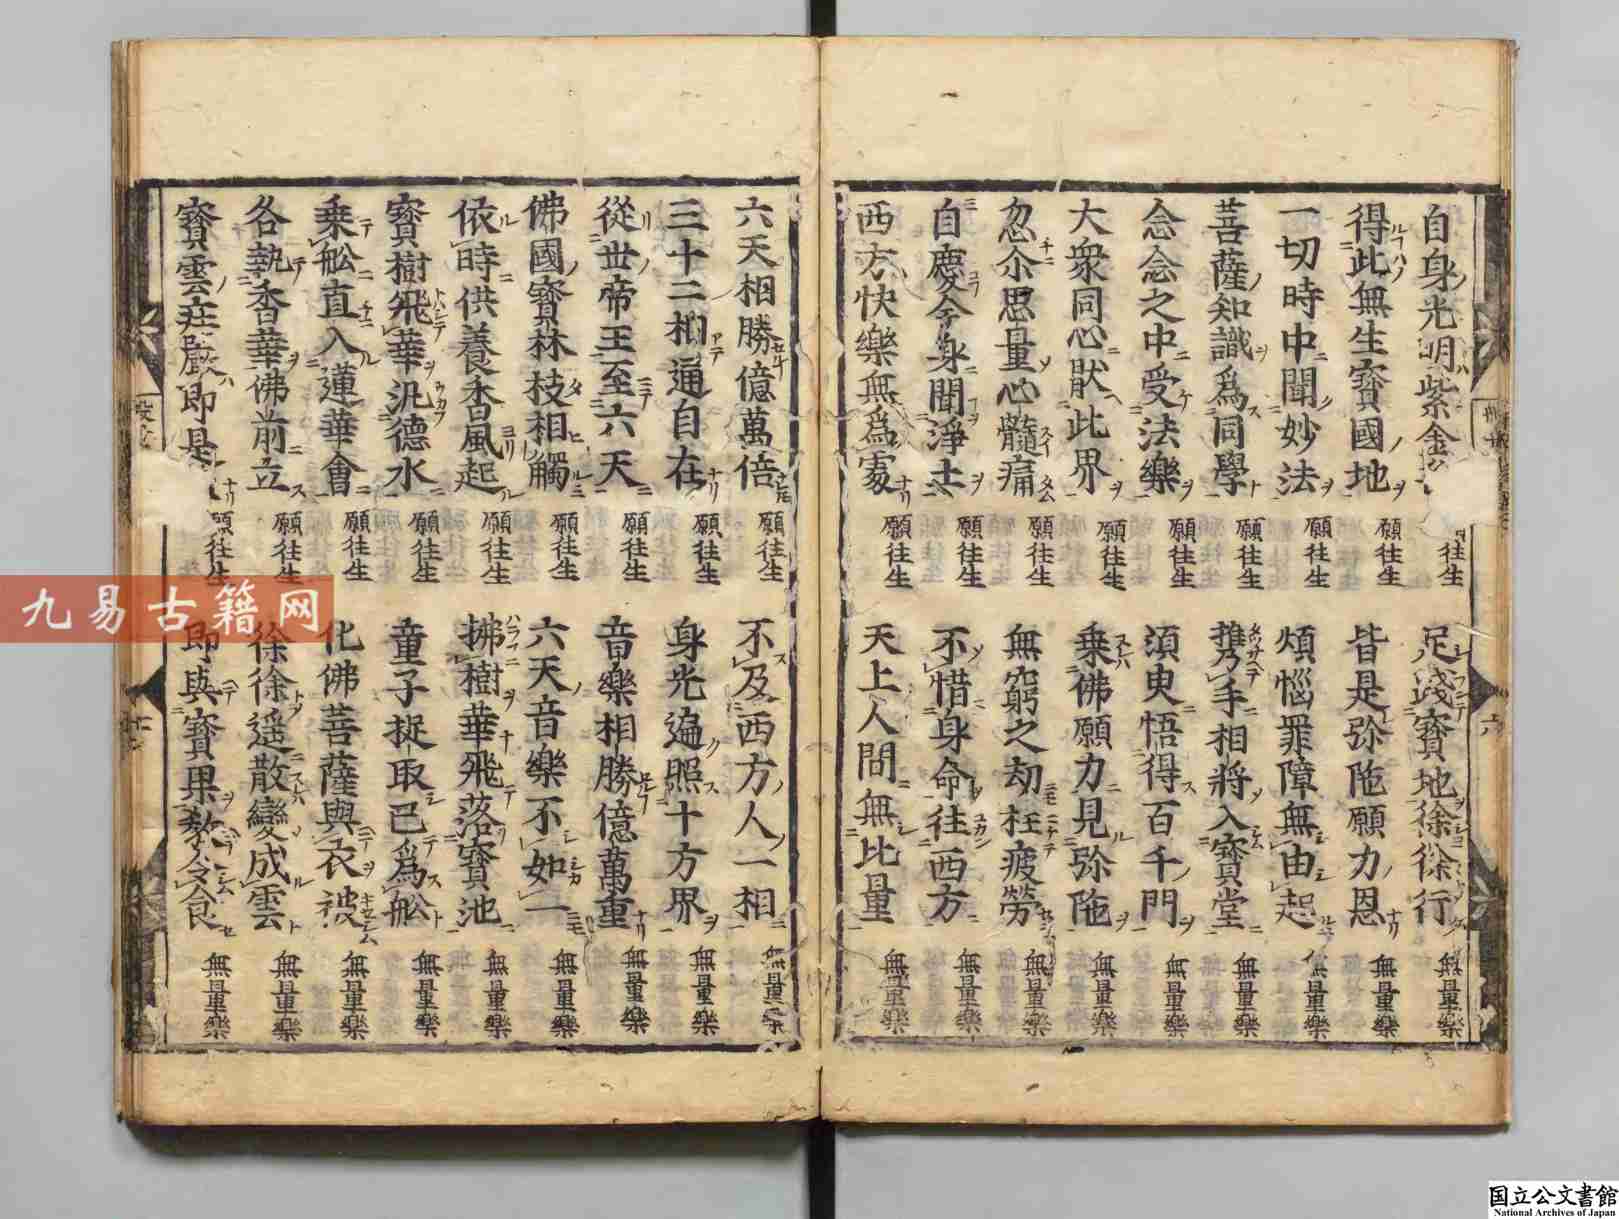 自身光明紫金 往生 足踐寶地徐徐行 無量樂
得此無生寶國地 願往生 皆是弥陁願力恩 無量樂
一切時中聞妙法 願往生 煩惱罪障無由起 無量樂
菩薩知識爲同學 願往生 手相將入寶堂 無量樂
念念之中受法樂 願往生 須臾悟得百千門 無量樂
大衆同心猒此界 願往生 乗佛願力見弥陁 無量樂
忽尒思量心髓痛 願往生 無窮之劫枉疲勞 無量樂
自慶今身聞淨土 願往生 不惜身命往西方 無量樂
西方快樂無爲處 願往生 天上人間無比量 無量樂
六天相勝億萬倍 願往生 不及西方人一相 無量樂
三十二相通自在 願往生 身光遍照十方界 無量樂
從世帝王至六天 願往生 音樂相勝億萬重 無量樂
佛國寶林枝相觸 願往生 六天音樂不如一 無量樂
依時供養香風起 願往生 拂樹華飛落寶池 無量樂
寶樹飛華汎德水 願往生 童子捉取已爲舩 無量樂
乗舩直入蓮華會 願往生 化佛菩薩與衣被 無量樂
各執香華佛前立 願往生 徐徐遥散變成雲 無量樂
寶雲莊嚴即是 願往生 即與寶果教令食 無量樂
九易古籍网
国立公文書館
National Archives of Japan